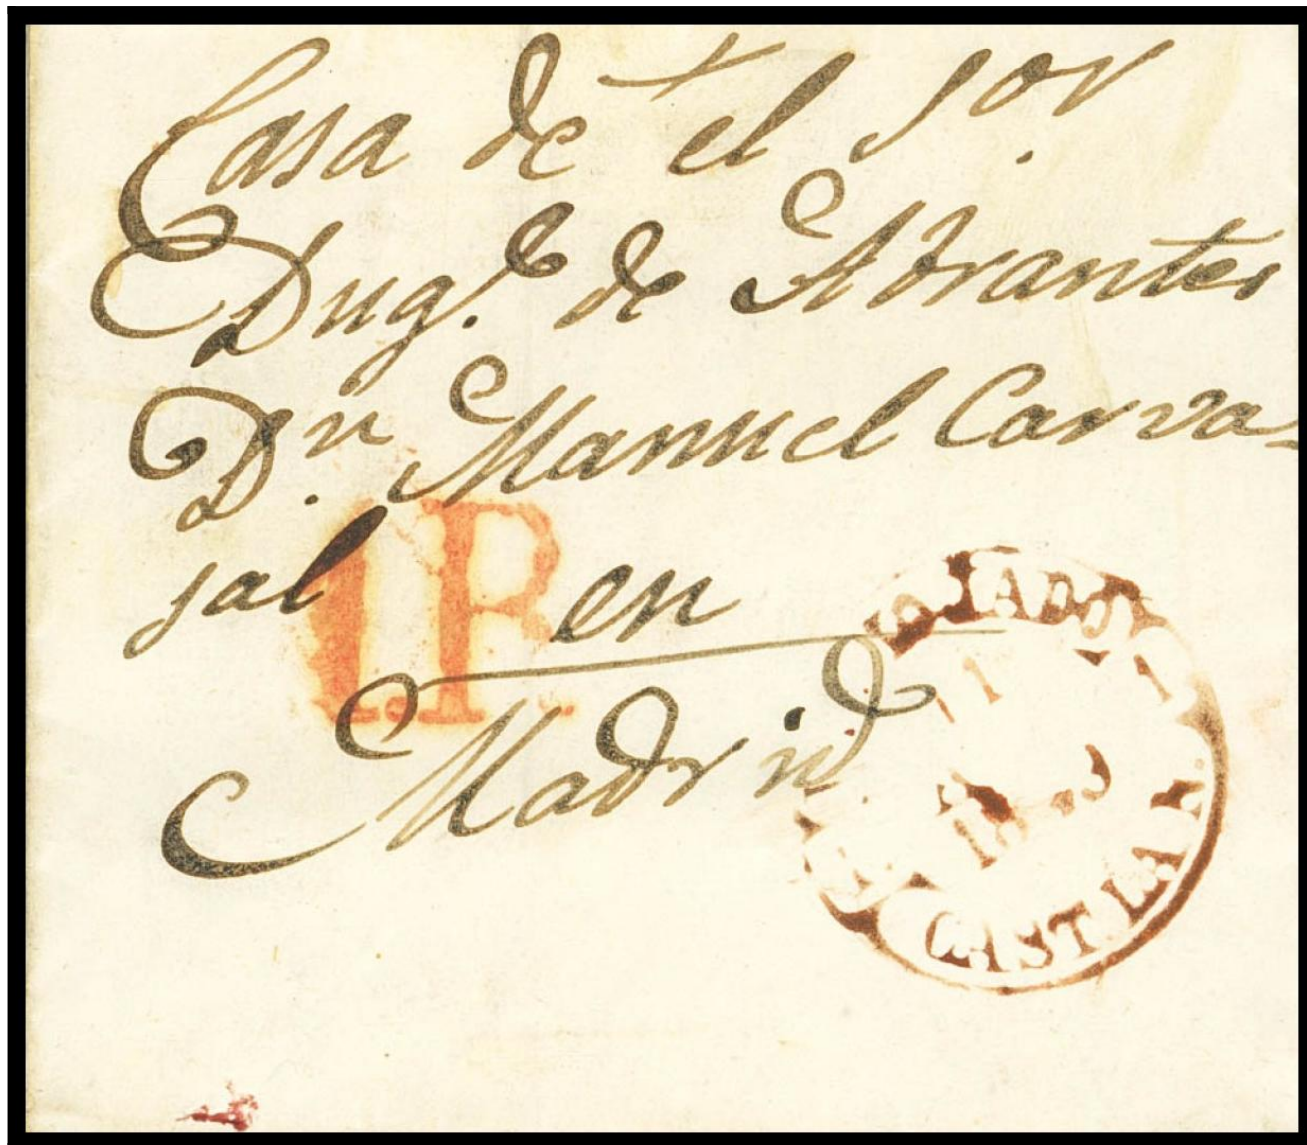 Casa de el Sor.
Duq.e de Abrantes
Dn. Manuel Carva-
jal en
Madrid
1.R.
CAST.LA